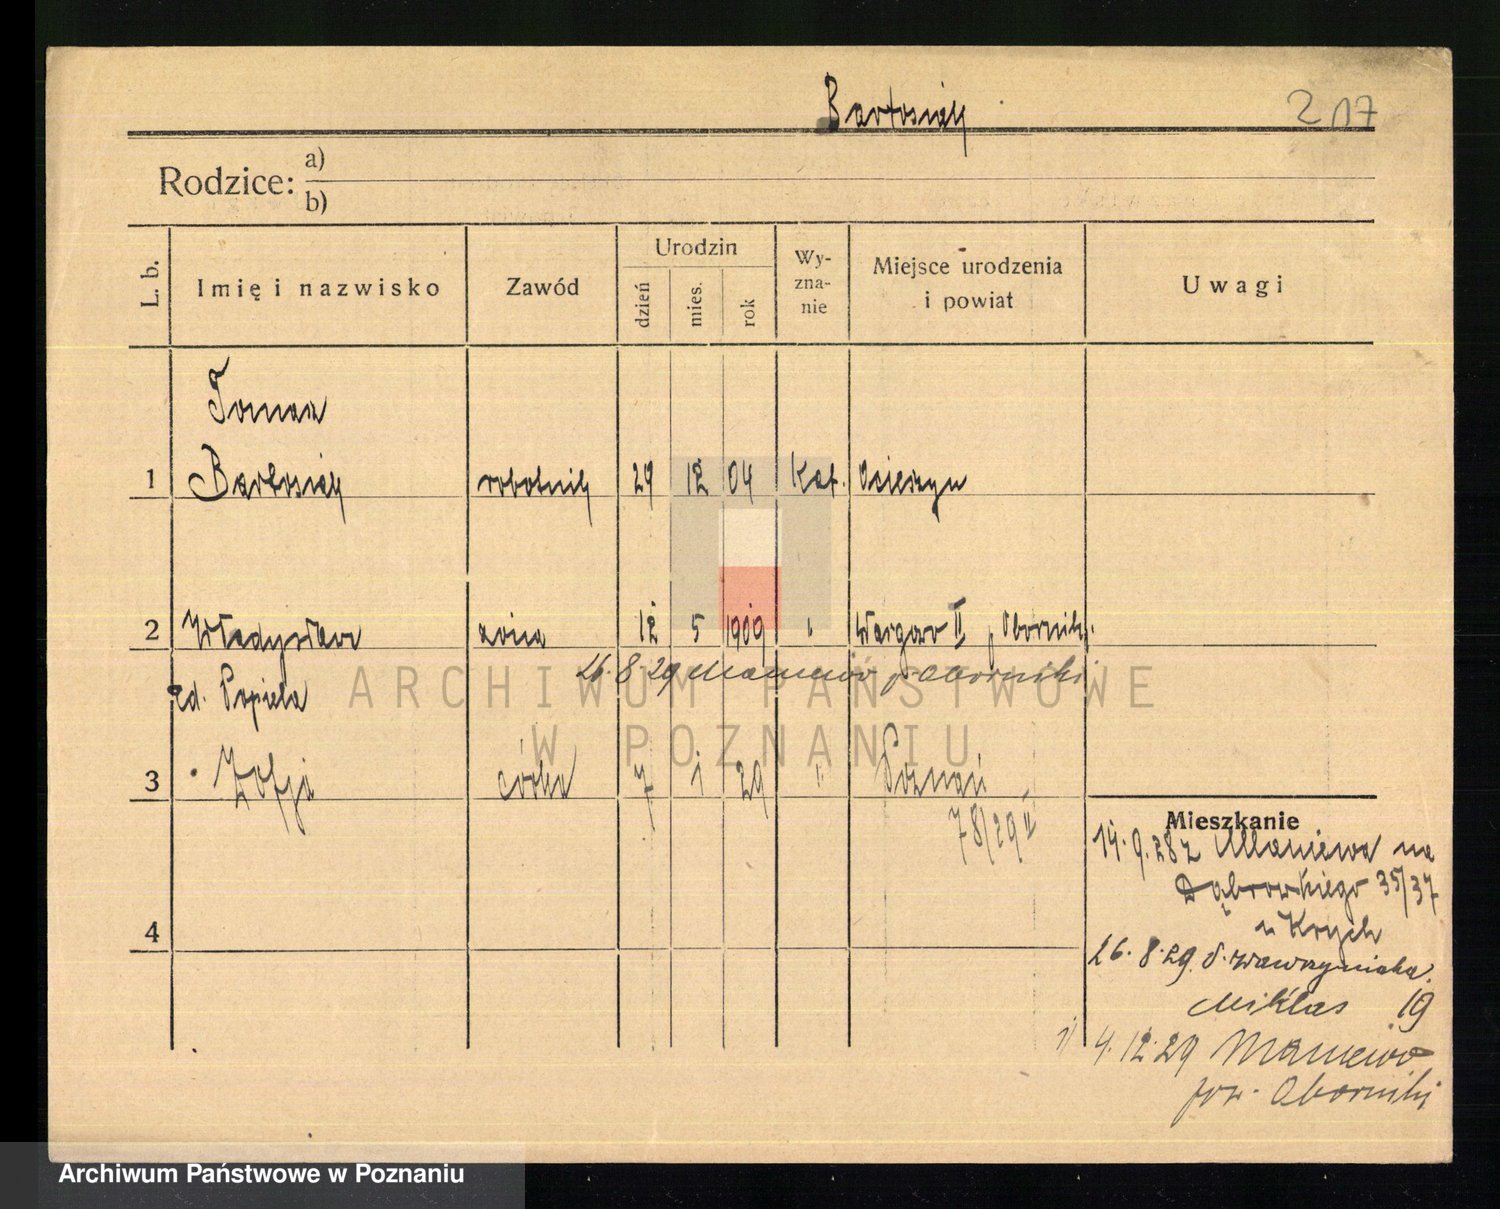 Bartosiak
217
Rodzice: a)
b)
L. b. Imię i nazwisko Zawód Urodzin dzień mies. rok Wyznanie Miejsce urodzenia i powiat Uwagi
Tomasz
1 Bartosiak robotnik 29 12 04 Kat. Ocieszyn
2 Władysława żona 12 5 1909 " Wargowo II p Oborniki
26.8.29 Maniewo p. Oborniki
zd. Popiela
3 Zofja córka 7 1 29 " Poznań
78/29 II
Mieszkanie
14.9.28 z Maniewa na
Dąbrowskiego 35/37
u Krych
4
26.8.29 S. Wawrzyniaka
Miklas 19
1) 4.12.29 Maniewo
pow. Oborniki
ARCHIWUM PAŃSTWOWE
W POZNANIU
Archiwum Państwowe w Poznaniu